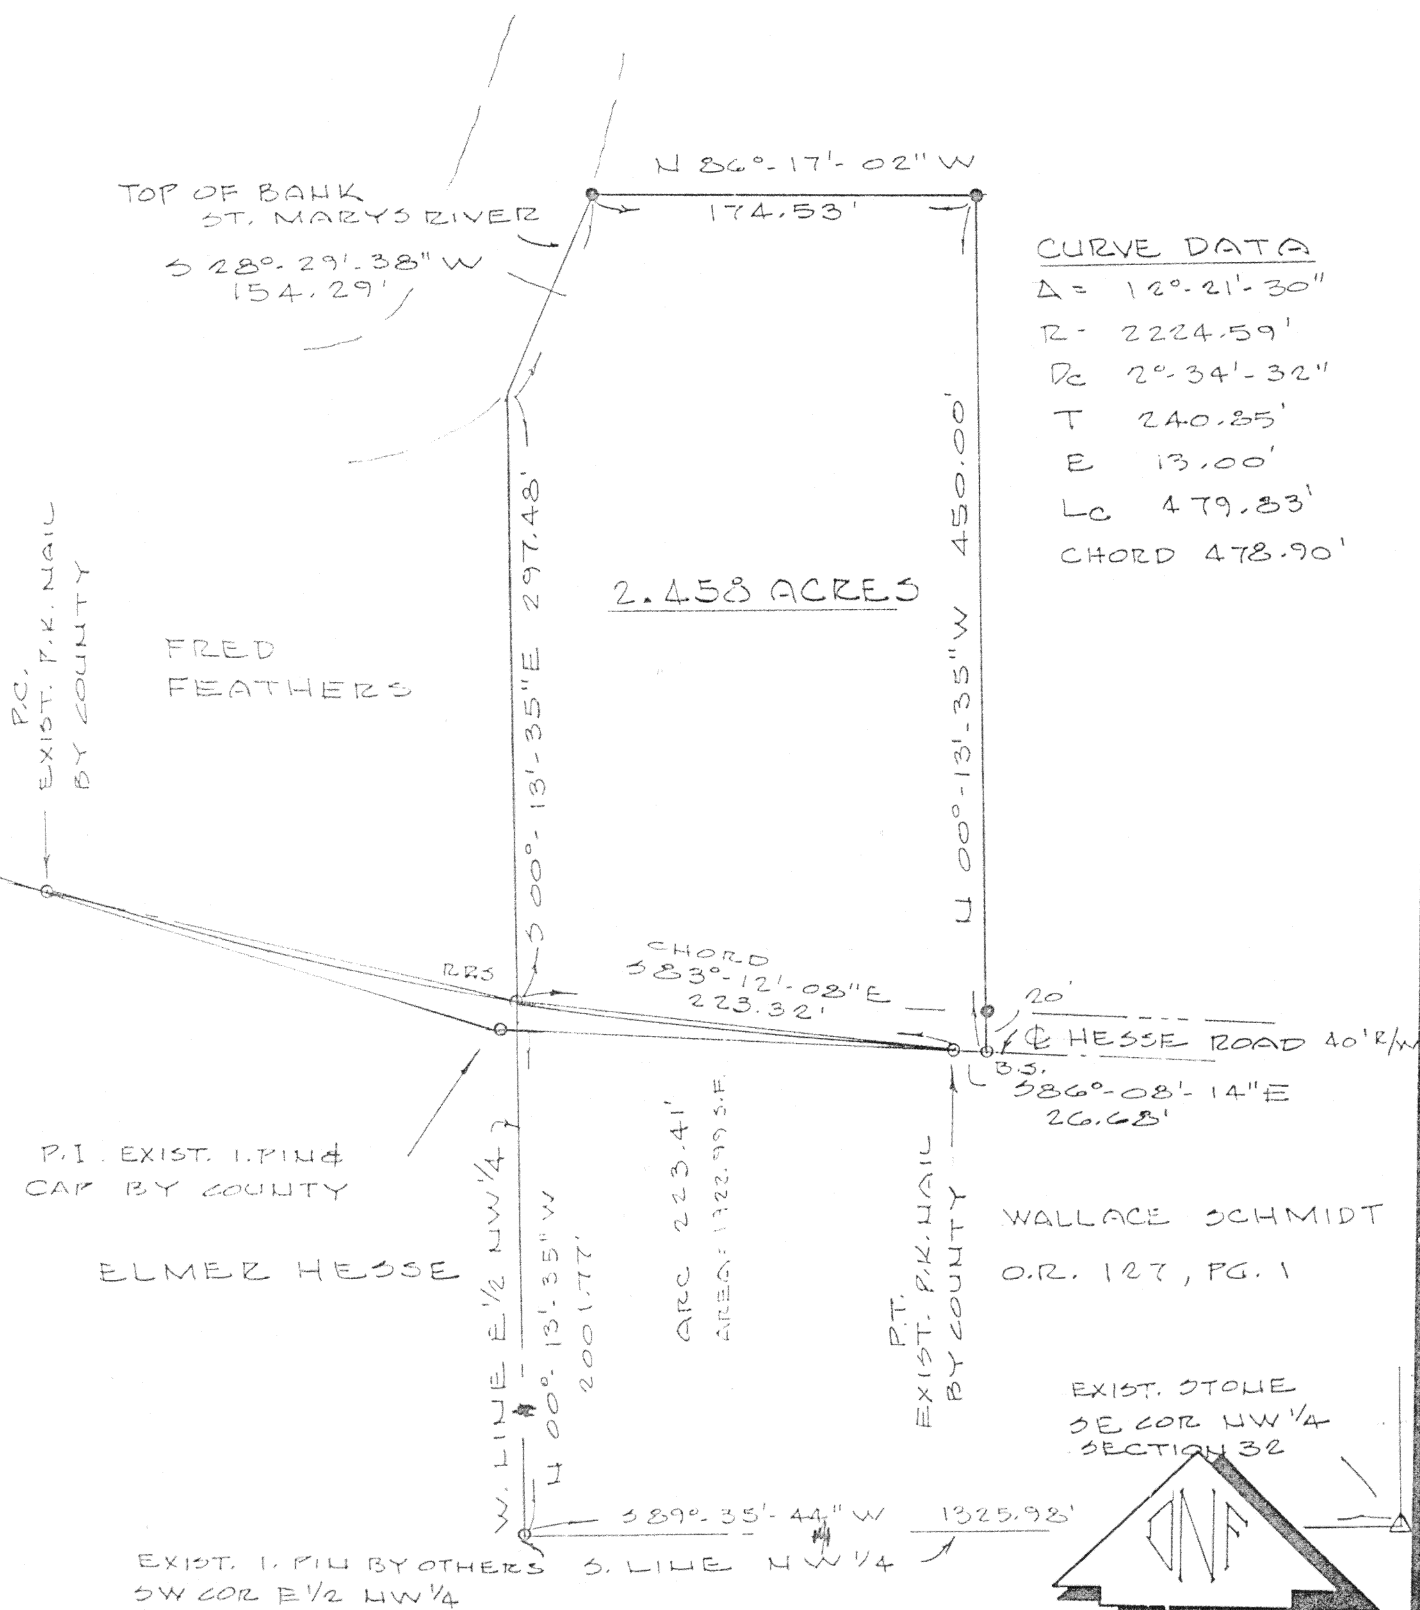 N 86°-17'-02" W
174.53'
TOP OF BANK
ST. MARYS RIVER
S 28°-29'-38" W
154.29'
CURVE DATA
Δ = 12°-21'-30"
R - 2224.59'
Dc 2°-34'-32"
T 240.85'
E 13.00'
Lc 479.83'
CHORD 478.90'
S 00°-13'-35" E 297.48'
N 00°-13'-35" W 450.00'
2.458 ACRES
P.C.
EXIST. P.K. NAIL
BY COUNTY
FRED
FEATHERS
RRS
CHORD
S 83°-12'-08" E
223.32'
20'
℄ HESSE ROAD 40' R/W
B.S.
S86°-08'-14" E
26.68'
P.I. EXIST. I. PIN &
CAP BY COUNTY
ELMER HESSE
W. LINE E 1/2 NW 1/4
N 00°-13'-35" W
2001.77'
ARC 223.41'
AREA: 1322.99 S.F.
P.T.
EXIST. P.K. NAIL
BY COUNTY
WALLACE SCHMIDT
O.R. 127, PG. 1
EXIST. STONE
SE COR NW 1/4
SECTION 32
S 89°-35'-44" W 1325.98'
EXIST. I. PIN BY OTHERS S. LINE NW 1/4
SW COR E 1/2 NW 1/4